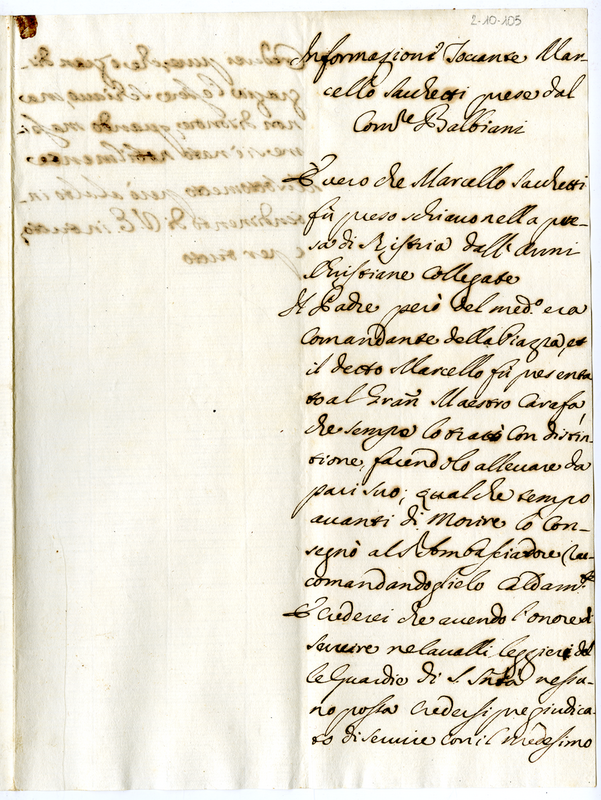 2-10-105
Informazioni Toccante Mar-
cello Sacchetti prese dal
Comre Balbiani
È vero che Marcello Sacchetti
fù preso schiavo nella pre-
sa di Ristria dall'Armi
Christiane Collegate
Il Padre però del med.o era
Comandante della Piazza, et
il detto Marcello fù presenta
to al Gran Maestro Carafa,
che sempre lo trattò con distin-
tione, facendolo allevare da
pari suo; qualche tempo
avanti di Morire lo Con-
segnò al S. Ambasciadore Rac-
comandandoglielo Caldam.te
È crederei che avendo l'onore di
servire ne Cavalli leggieri del
le Guardie di S. Sntà nessu-
no possa credersi pregiudica-
to di servire con il medesimo